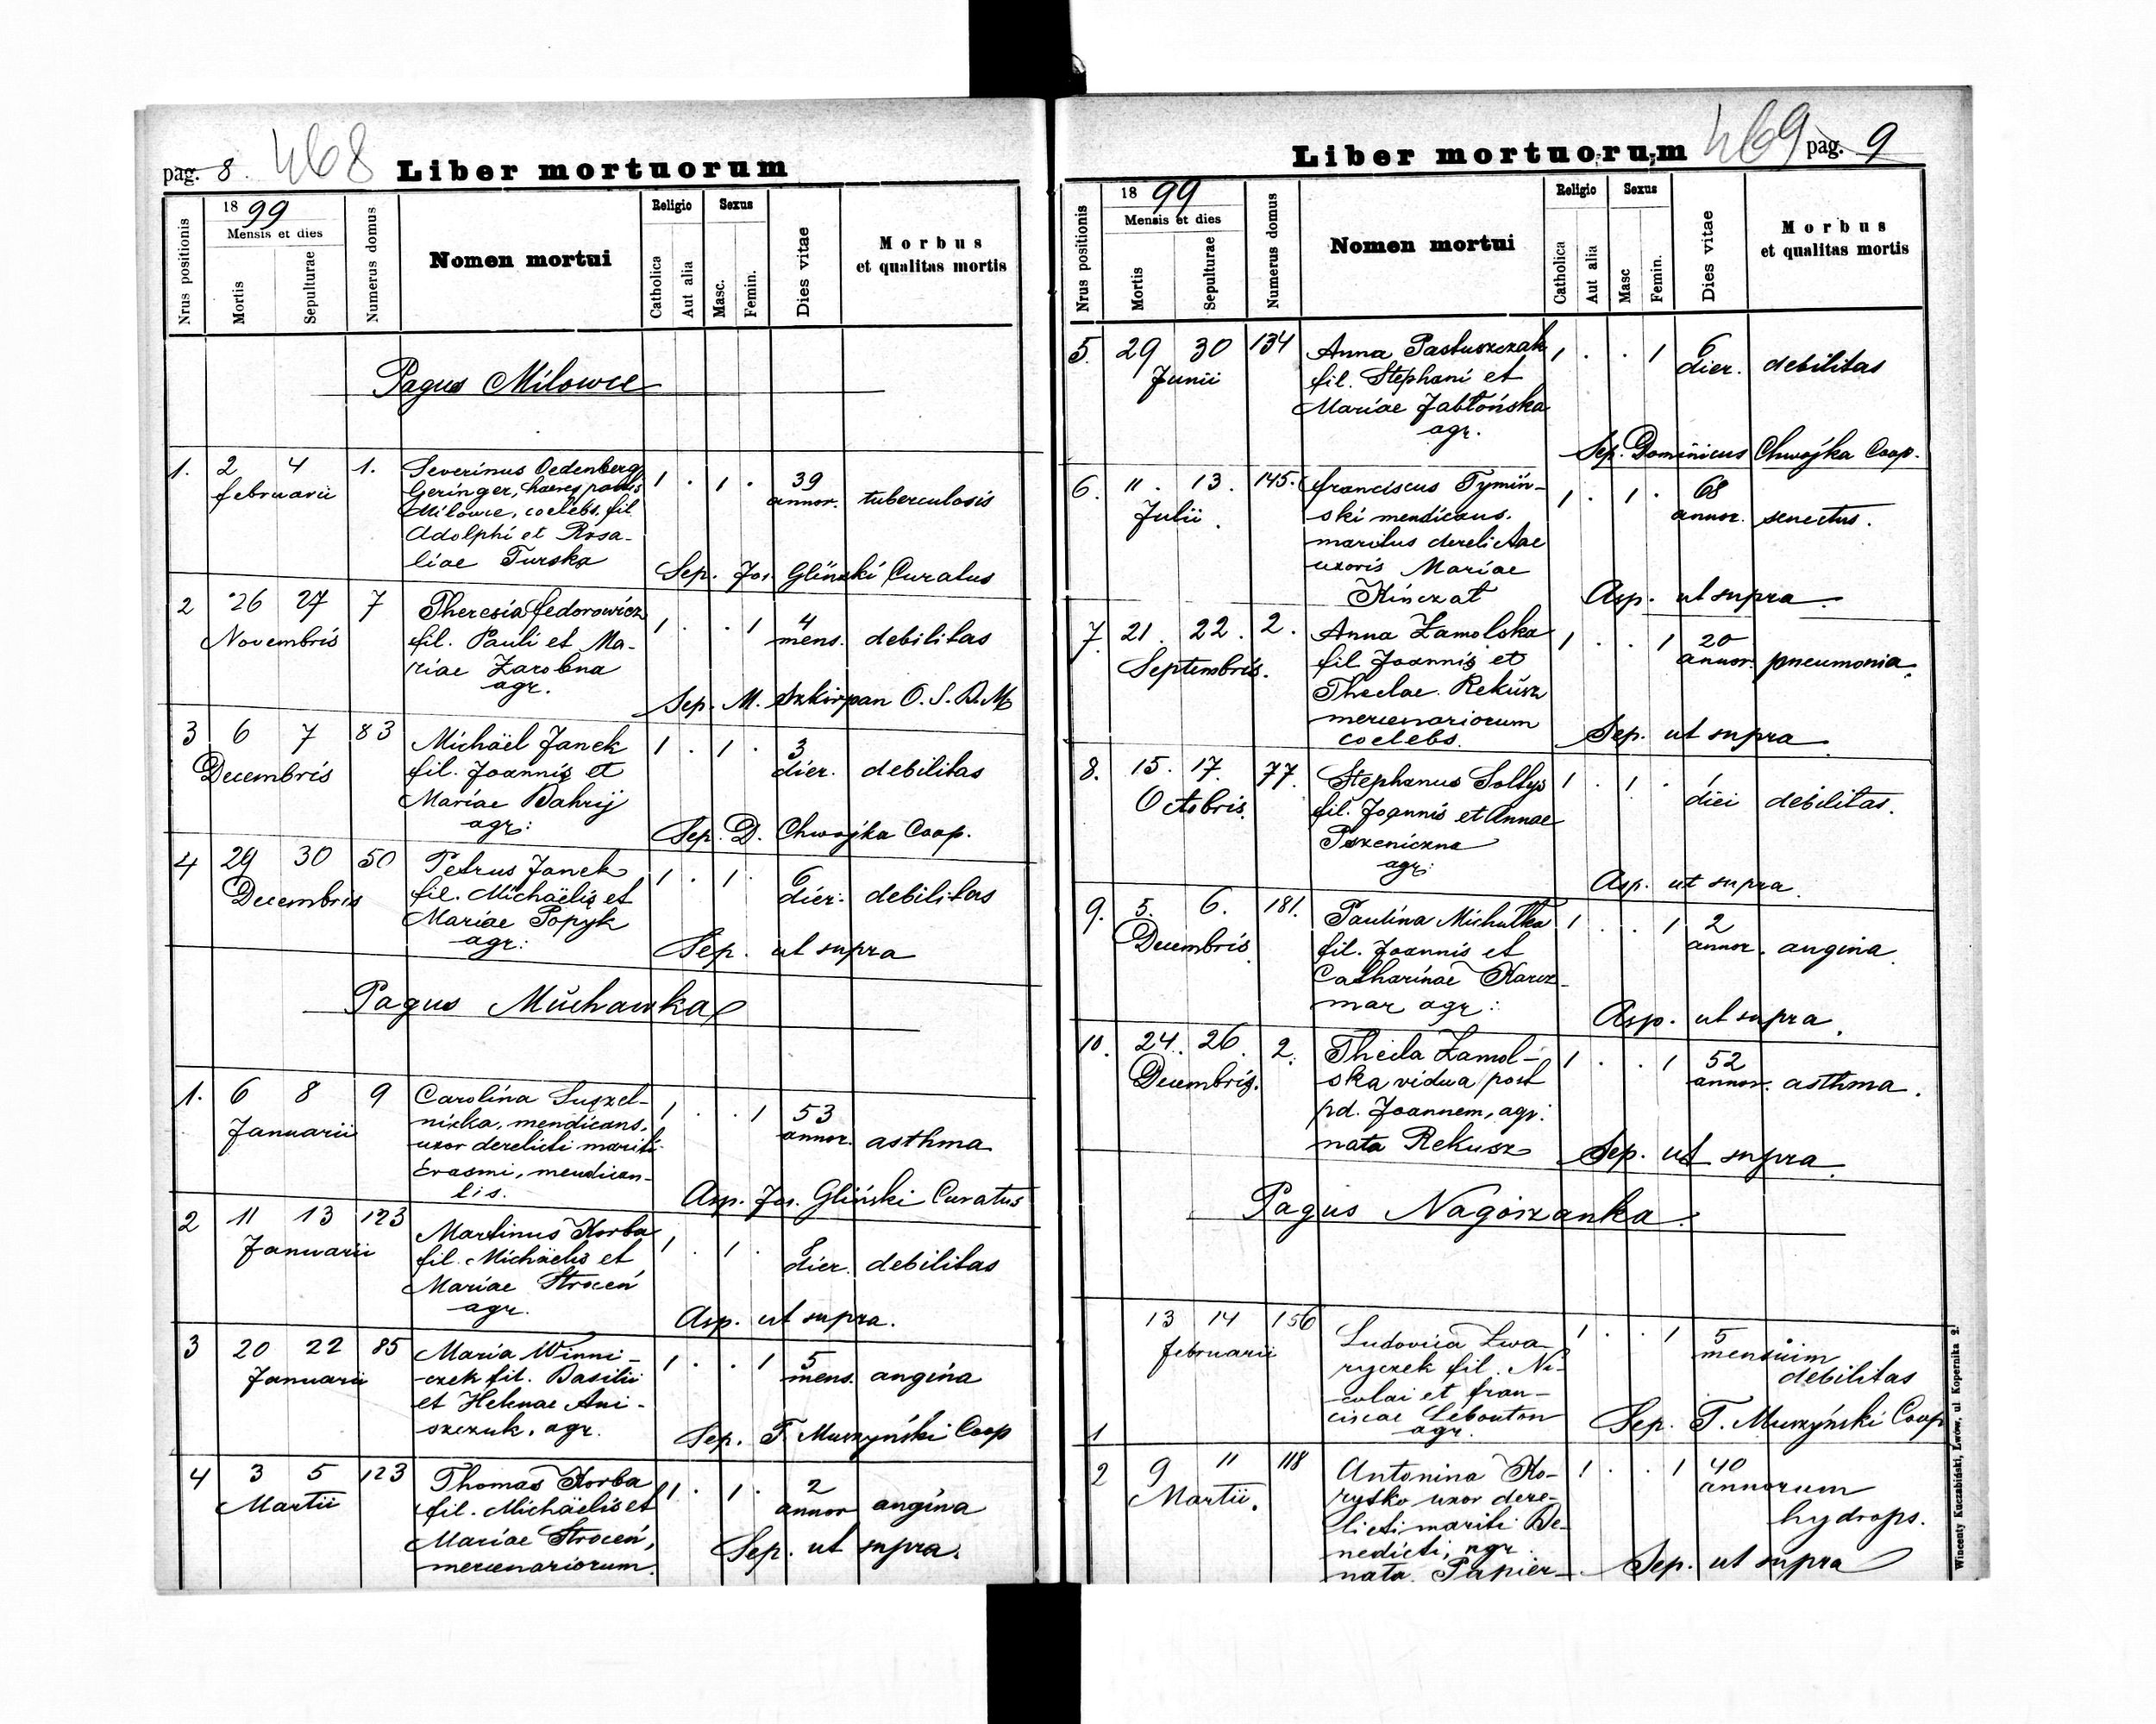 pag. 8. 468 Liber mortuorum
Nrus positionis
1899
Mensis et dies
Mortis
Sepulturae
Numerus domus
Nomen mortui
Religio
Catholica
Aut alia
Sexus
Masc.
Femin.
Dies vitae
Morbus
et qualitas mortis
Pagus Milowce
1. 2 4 1. Severinus Oedenberg
februarii Geringer, haeres
Milowce, coelebs. fil. 1 . 1 . 39
Adolphi et Rosa- annor. tuberculosis
liae Turska
Sep. Jos. Gliński Curatus
2 26 27 7 Theresia fedorowicz
Novembris fil. Pauli et Ma- 1 . . 1 4
riae Zarobna mens. debilitas
agr.
Sep. M. Szkirpan O. S. B. M
3 6 7 83 Michaël Janek 1 . 1 . 3
Decembris fil. Joannis et dier. debilitas
Mariae Bahrij
agr:
Sep. D. Chwojka Coop.
4 29 30 50 Petrus Janek 1 . 1 . 6
Decembris fil. Michaëlis et dier. debilitas
Mariae Popyk
agr:
Sep. ut supra
Pagus Muchawka
1. 6 8 9 Carolina Suszel-
Januarii nicka, mendicans, 1 . . 1 53
uxor derelicti mariti annor. asthma
Erasmi, mendican-
tis.
Asp. Jos. Gliński Curatus
2 11 13 123 Martinus Korba
Januarii fil. Michäelis et 1 . 1 .
Mariae Stroceń dier. debilitas
agr.
Asp. ut supra.
3 20 22 85 Maria Winni-
Januarii czek fil. Basilii 1 . . 1 5
et Helenae Ani- mens. angina
szczuk, agr.
Sep. T. Muszyński Coop
4 3 5 123 Thomas Korba
Martii fil. Michäelis et 1 . 1 . 2
Mariae Stroceń, annor angina
mercenariorum.
Sep. ut supra.
Liber mortuorum 469 pag. 9
Nrus positionis
1899
Mensis et dies
Mortis
Sepulturae
Numerus domus
Nomen mortui
Religio
Catholica
Aut alia
Sexus
Masc
Femin.
Dies vitae
Morbus
et qualitas mortis
5. 29 30 134 Anna Pastuszczak 1 . . 1 6
Junii fil. Stephani et dier. debilitas
Mariae Jabłońska
agr.
Sep. Dominicus Chwojka Coop.
6. 11. 13. 145. franciscus Tymiń- 1 . 1 . 68
Julii. ski mendicans. annor. senectus.
maritus derelictae
uxoris Mariae
Kinczat
Asp. ut supra.
7. 21. 22. 2. Anna Zamolska 1 . . 1 20
Septembris. fil Joannis et annor. pneumonia.
Theclae Rekusz
mercenariorum
coelebs.
Sep. ut supra.
8. 15. 17. 77. Stephanus Soltys 1 . 1 .
Octobris. fil. Joannis et Annae diei debilitas.
Pszeniczna
agr:
Asp. ut supra.
9. 5. 6. 181. Paulina Michulka 1 . . 1 2
Decembris. fil. Joannis et annor. angina.
Catharinae Karcz-
mar agr:
Asp. ut supra.
10. 24. 26. 2. Thecla Zamol- 1 . . 1 52
Decembris. ska vidua post annor. asthma.
pd. Joannem, agr:
nata Rekusz
Sep. ut supra.
Pagus Nagórzanka.
13 14 156 Ludovica Zwa- 1 . . 1 5
februarii ryczek fil. Ni- mensium
colai et fran- debilitas
ciscae Lebouton
1 agr. Sep. T. Muszyński Coop
2 9 11 118 Antonina Ko- 1 . . 1 40
Martii. rytko uxor dere- annorum
licti mariti Be- hydrops.
nedicti, agr.
nata Papier- Sep. ut supra
Wincenty Kuczabiński, Lwów, ul Kopernika 2.